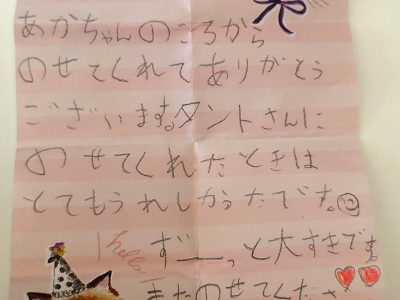 あかちゃんのころから
のせてくれてありがとう
ございますタントさんに
のせてくれたときは
とてもうれしかったです。
hello
ずーっと大すきです
またのせてくださ